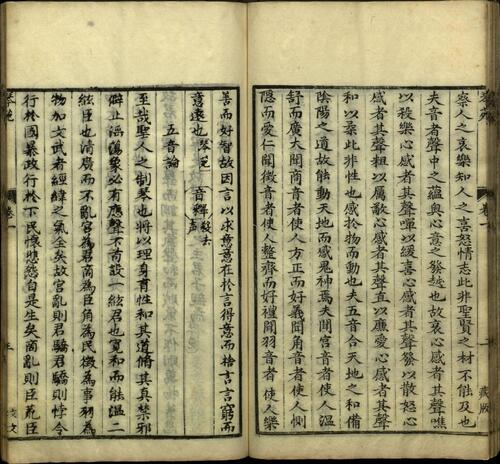 察人之哀樂知人之喜怒情志此非聖賢之材不能及也
夫音者聲中之蘊與心意之發越也故哀心感者其聲噍
以殺樂心感者其聲嘽以緩喜心感者其聲發以散怒心
感者其聲粗以厲敬心感者其聲直以廉愛心感者其聲
和以柔此非性也感於物而動也夫五音合天地之和備
陰陽之道故能動天地而感鬼神焉夫聞宮音者使人溫
舒而廣大聞商音者使人方正而好義聞角音者使人惻
隱而愛仁聞徵音者使人整齊而好禮聞羽音者使人樂
善而好智故因言以求意意在於言得意而捨言言窮而
意遠也
五音論
至哉聖人之制琴也將以理身育性和其道脩其真禁邪
僻止淫蕩象必有應聲不苟設一絃君也寬和而能溫二
絃臣也清廣而不亂宮為君商為臣角為民徵為事羽為
物加文武者經緯之氣全矣故宮亂則君驕君驕則悖令
行於國暴政行於下民懷愁怨自是生矣商亂則臣荒臣
卷一
三